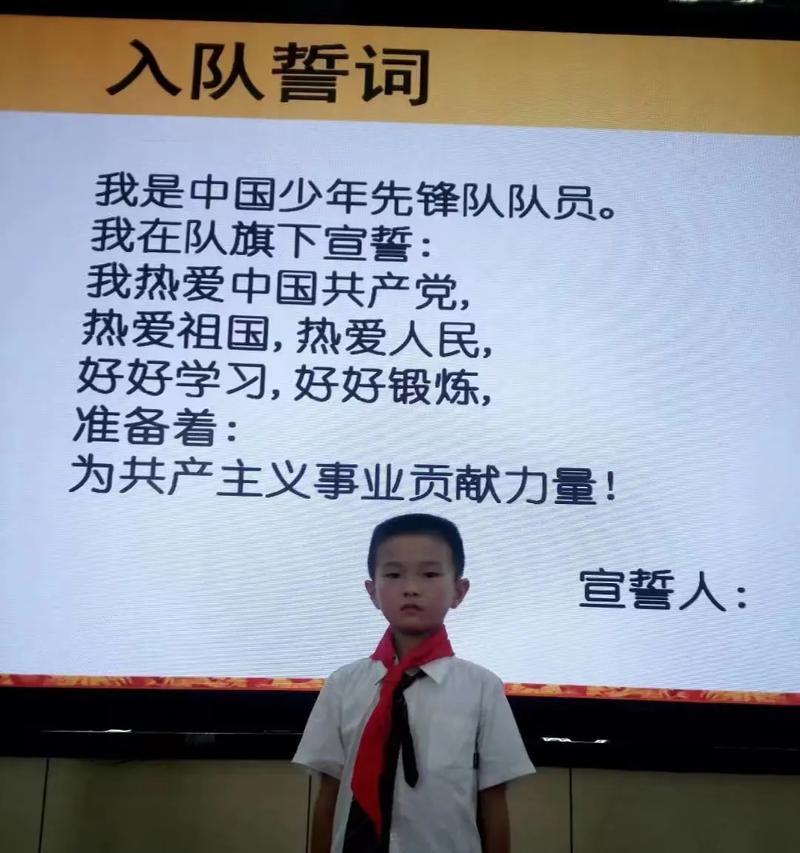 入队誓词
我是中国少年先锋队队员。
我在队旗下宣誓:
我热爱中国共产党,
热爱祖国,热爱人民,
好好学习,好好锻炼,
准备着:
为共产主义事业贡献力量!
宣誓人: